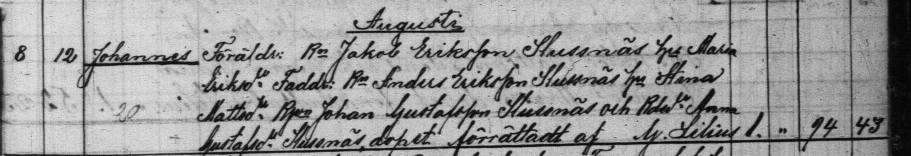 Augusti
8 12 Johannes Föräldr: Rn Jakob Eriksson Slussnäs hu Maria
Eriksdr. Faddr: Rn Anders Eriksson Slussnäs hu Stina
20 Mattsdr. Johan Gustafsson Slussnäs och Anna
Gustafsdr. Slussnäs, dopet förrättadt af M. Lilius 1. " 94 43